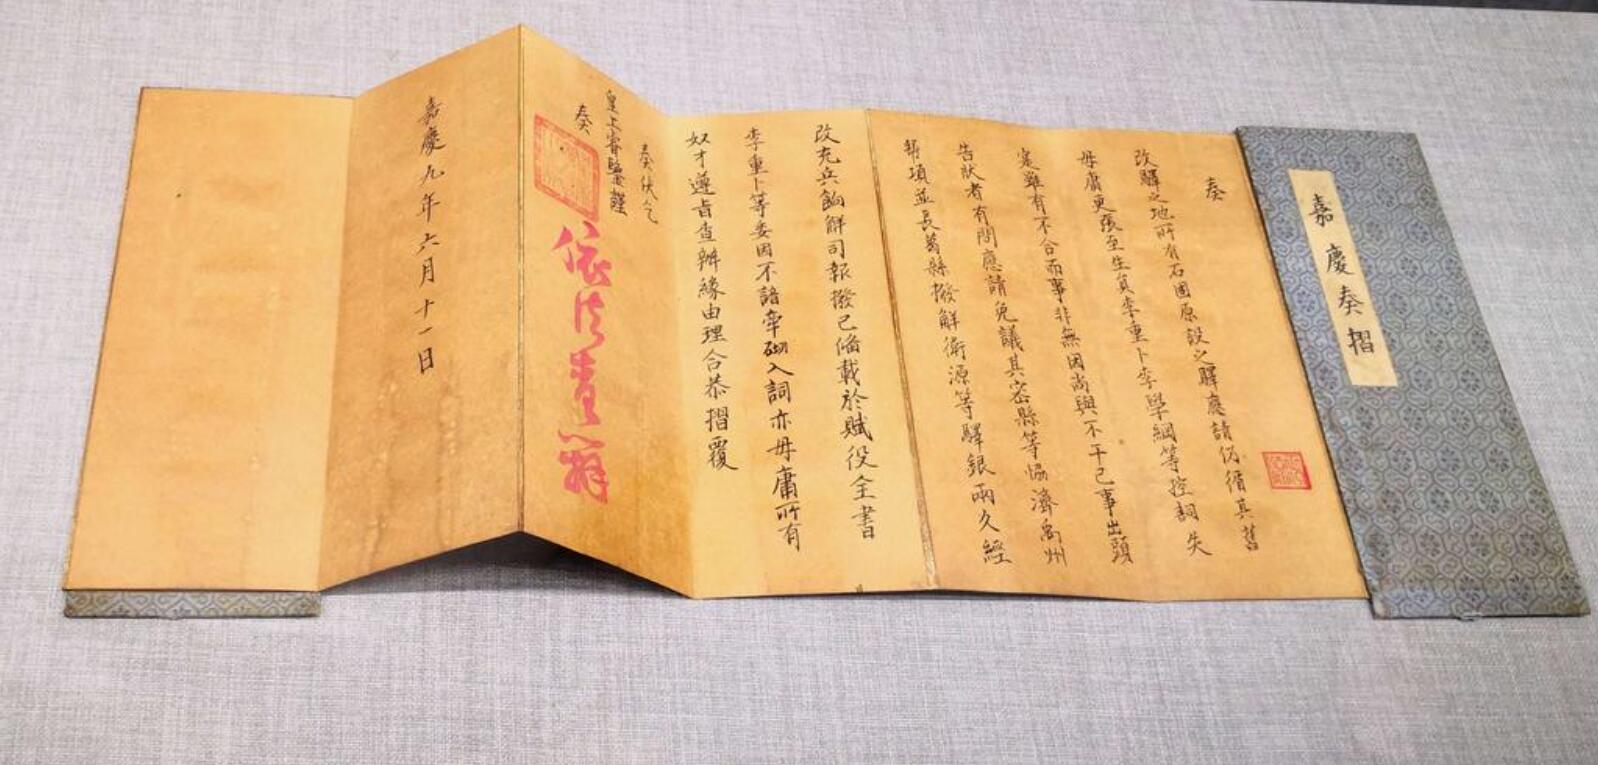 嘉慶奏摺
奏
改驛之地所有石固原設之驛應請仍循其舊
毋庸更張至生員李重卜李學綱等控詞失
寔雖有不合而事非無因尚與不干己事出頭
告狀者有間應請免議其密縣等協濟禹州
幫項並長葛縣撥解衛源等驛銀兩久經
改充兵餉解司報撥已備載於賦役全書
李重卜等委因不諳牽砌入詞亦毋庸所有
奴才遵旨查辦緣由理合恭摺覆
奏伏乞
皇上睿鑒謹
奏
嘉慶九年六月十一日